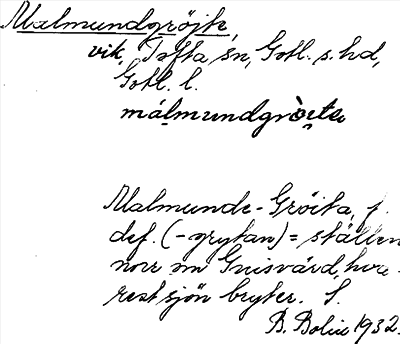 Malmundgröjte,
vik, Tofta sn, Gotl. s. hd,
Gotl. l.
málmundgròɛta
Malmunde-Gröita, f.
def. (-grytan) = ställen
norr om Gnisvärd, hva-
rest sjön bryter. S.
B. Bolin 1932.